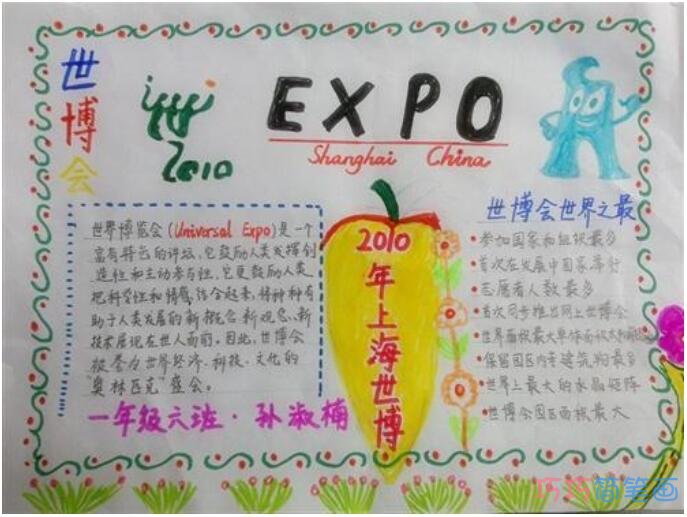 世博会
2010
EXPO
Shanghai China
世界博览会(Universal Expo)是一个
富有特色的讲坛,它鼓励人类发挥创
造性和主动参与性,它更鼓励人类
把科学性和情感结合起来,将种种有
助于人类发展的新概念、新观念、新
技术展现在世人面前。因此,世博会
被誉为世界经济、科技、文化的
"奥林匹克"盛会。
一年级六班·孙淑楠
2010年上海世博
世博会世界之最
•参加国家和组织最多
•首次在发展中国家举行
•志愿者人数最多
•首次同步推出网上世博会
•世界面积最大单体面积
•保留园区内老建筑物最多
•世界上最大的水晶矩阵
•世博会园区面积最大
巧巧简笔画